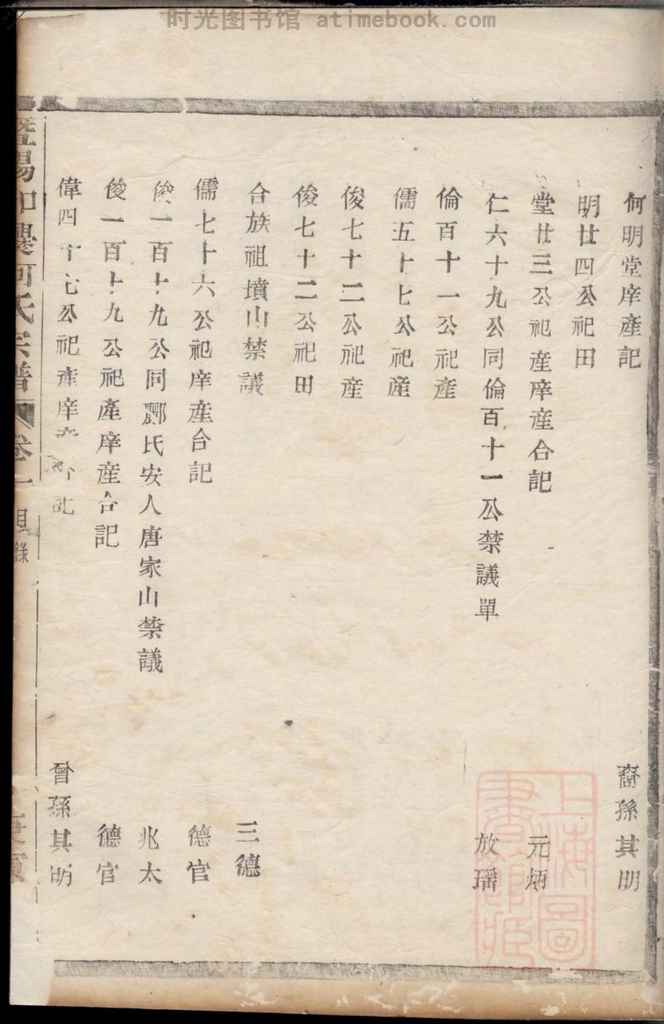 时光图书馆 - atimebook.com
何明堂庠產記 裔孫其明
明廿四公祀田
堂廿三公祀產庠產合記 元炳
仁六十九公同倫百十一公禁議單 放瑶
倫百十一公祀產
儒五十七公祀產
俊七十二公祀產
俊七十二公祀田
合族祖墳山禁議 三德
儒七十六公祀庠產合記 德官
俊一百十九公同酈氏安人唐家山禁議 兆太
俊一百十九公祀產庠產合記 德官
偉四十七公祀產庠產合記 曾孫其明
暨陽 何氏宗譜 卷一 目錄
上海圖書館藏